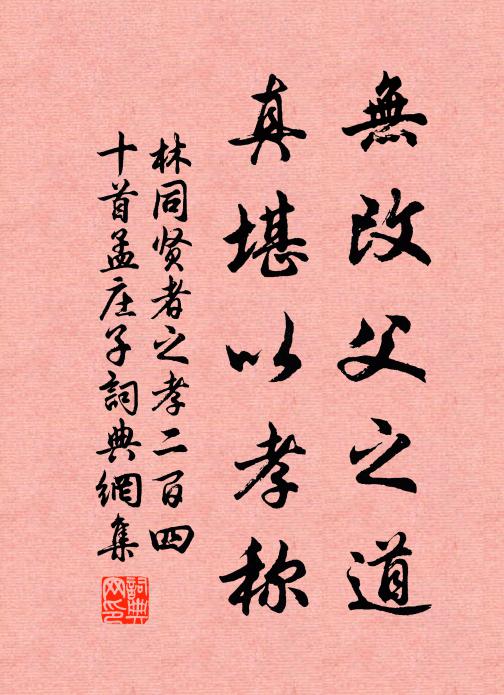 無改父之道
真堪以孝称
林同贤者之孝二百四
十首孟庄子詞典網集
詞典网印